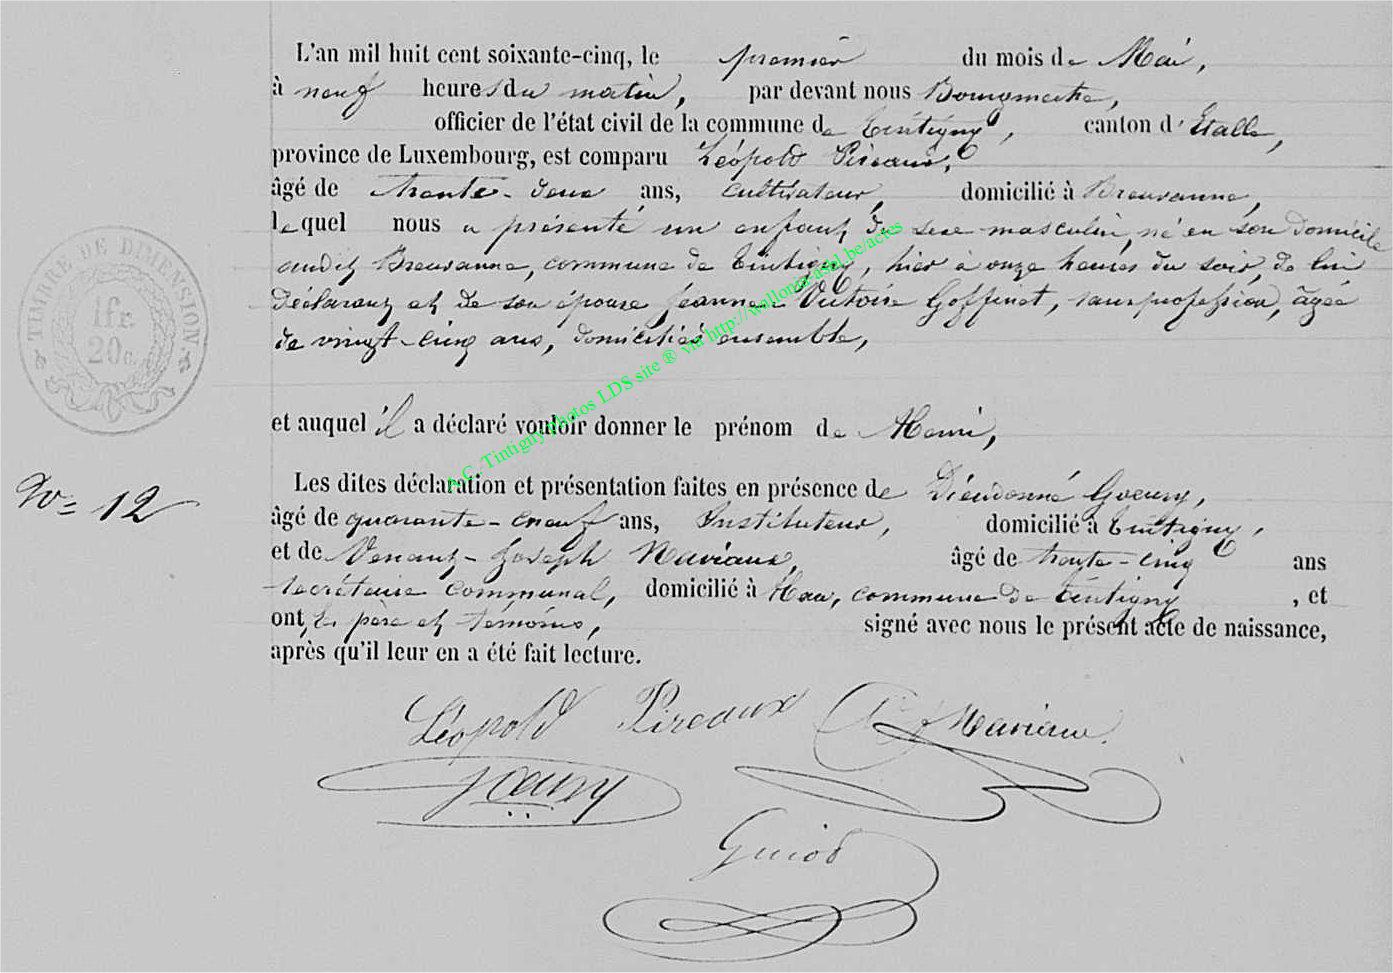 L'an mil huit cent soixante-cinq, le premier du mois de Mai,
à neuf heures du matin, par devant nous Bourgmestre,
officier de l'état civil de la commune de Tintigny, canton d'Etalle,
province de Luxembourg, est comparu Léopold Pireaux,
âgé de trente-deux ans, cultivateur, domicilié à Breuvanne,
lequel nous a présenté un enfant du sexe masculin, né en son domicile
audit Breuvanne, commune de Tintigny, hier à onze heures du soir, de lui
déclarant et de son épouse Jeanne Victoire Goffinet, sans profession, âgée
de vingt-cinq ans, domiciliés ensemble,
TIMBRE DE DIMENSION
1fr.
20c.
et auquel il a déclaré vouloir donner le prénom de Henri,
N° = 12
Les dites déclaration et présentation faites en présence de Dieudonné Goeury,
âgé de quarante-neuf ans, Instituteur, domicilié à Tintigny,
et de Venant-Joseph Naviaux, âgé de trente-cinq ans
secrétaire communal, domicilié à Han, commune de Tintigny, et
ont, le père et témoins, signé avec nous le présent acte de naissance,
après qu'il leur en a été fait lecture.
Léopold Pireaux Naviaux
Goeury
Guiot
A.C. Tintigny photos LDS site ® via http://wallonia-asbl.be/actes